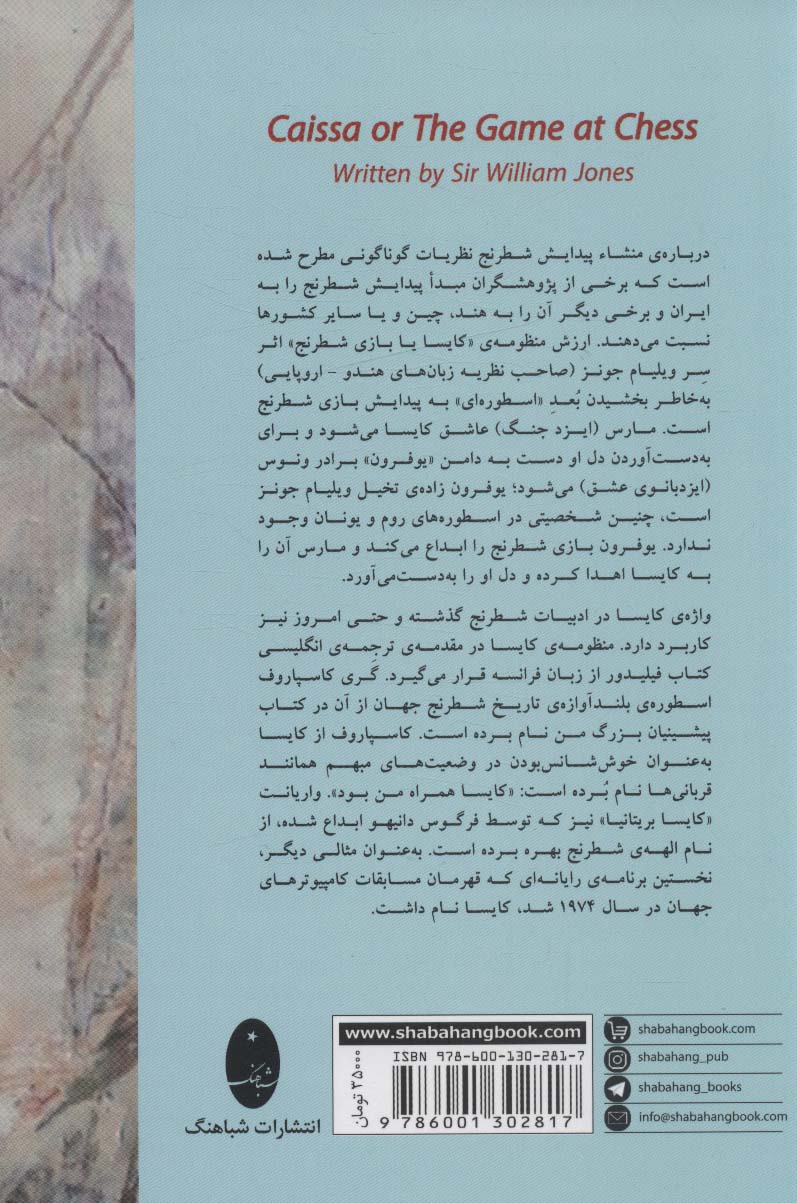 Caissa or The Game at Chess
Written by Sir William Jones
درباره‌ی منشاء پیدایش شطرنج نظریات گوناگونی مطرح شده
است که برخی از پژوهشگران مبدأ پیدایش شطرنج را به
ایران و برخی دیگر آن را به هند، چین و یا سایر کشورها
نسبت می‌دهند. ارزش منظومه‌ی «کایسا یا بازی شطرنج» اثر
سِر ویلیام جونز (صاحب نظریه زبان‌های هندو - اروپایی)
به‌خاطر بخشیدن بُعدِ «اسطوره‌ای» به پیدایش بازی شطرنج
است. مارس (ایزد جنگ) عاشق کایسا می‌شود و برای
به‌دست‌آوردن دل او دست به دامن «یوفرون» برادر ونوس
(ایزدبانوی عشق) می‌شود؛ یوفرون زاده‌ی تخیل ویلیام جونز
است، چنین شخصیتی در اسطوره‌های روم و یونان وجود
ندارد. یوفرون بازی شطرنج را ابداع می‌کند و مارس آن را
به کایسا اهدا کرده و دل او را به‌دست‌می‌آورد.
واژه‌ی کایسا در ادبیات شطرنج گذشته و حتی امروز نیز
کاربرد دارد. منظومه‌ی کایسا در مقدمه‌ی ترجِمه‌ی انگلیسی
کتاب فیلیدور از زبان فرانسه قرار می‌گیرد. گری کاسپاروف
اسطوره‌ی بلندآوازه‌ی تاریخ شطرنج جهان از آن در کتاب
پیشینیان بزرگ من نام برده است. کاسپاروف از کایسا
به‌عنوان خوش‌شانس‌بودن در وضعیت‌های مبهم همانند
قربانی‌ها نام بُرده است: «کایسا همراه من بود». واریانت
«کایسا بریتانیا» نیز که توسط فرگوس دانیهو ابداع شده، از
نام الهه‌ی شطرنج بهره برده است. به‌عنوان مثالی دیگر،
نخستین برنامه‌ی رایانه‌ای که قهرمان مسابقات کامپیوترهای
جهان در سال ۱۹۷۴ شد، کایسا نام داشت.
شباهنگ
انتشارات شباهنگ
www.shabahangbook.com
ISBN 978-600-130-281-7
۳۵۰۰۰ تومان
9 786001 302817
shabahangbook.com
shabahang_pub
shabahang_books
info@shabahangbook.com